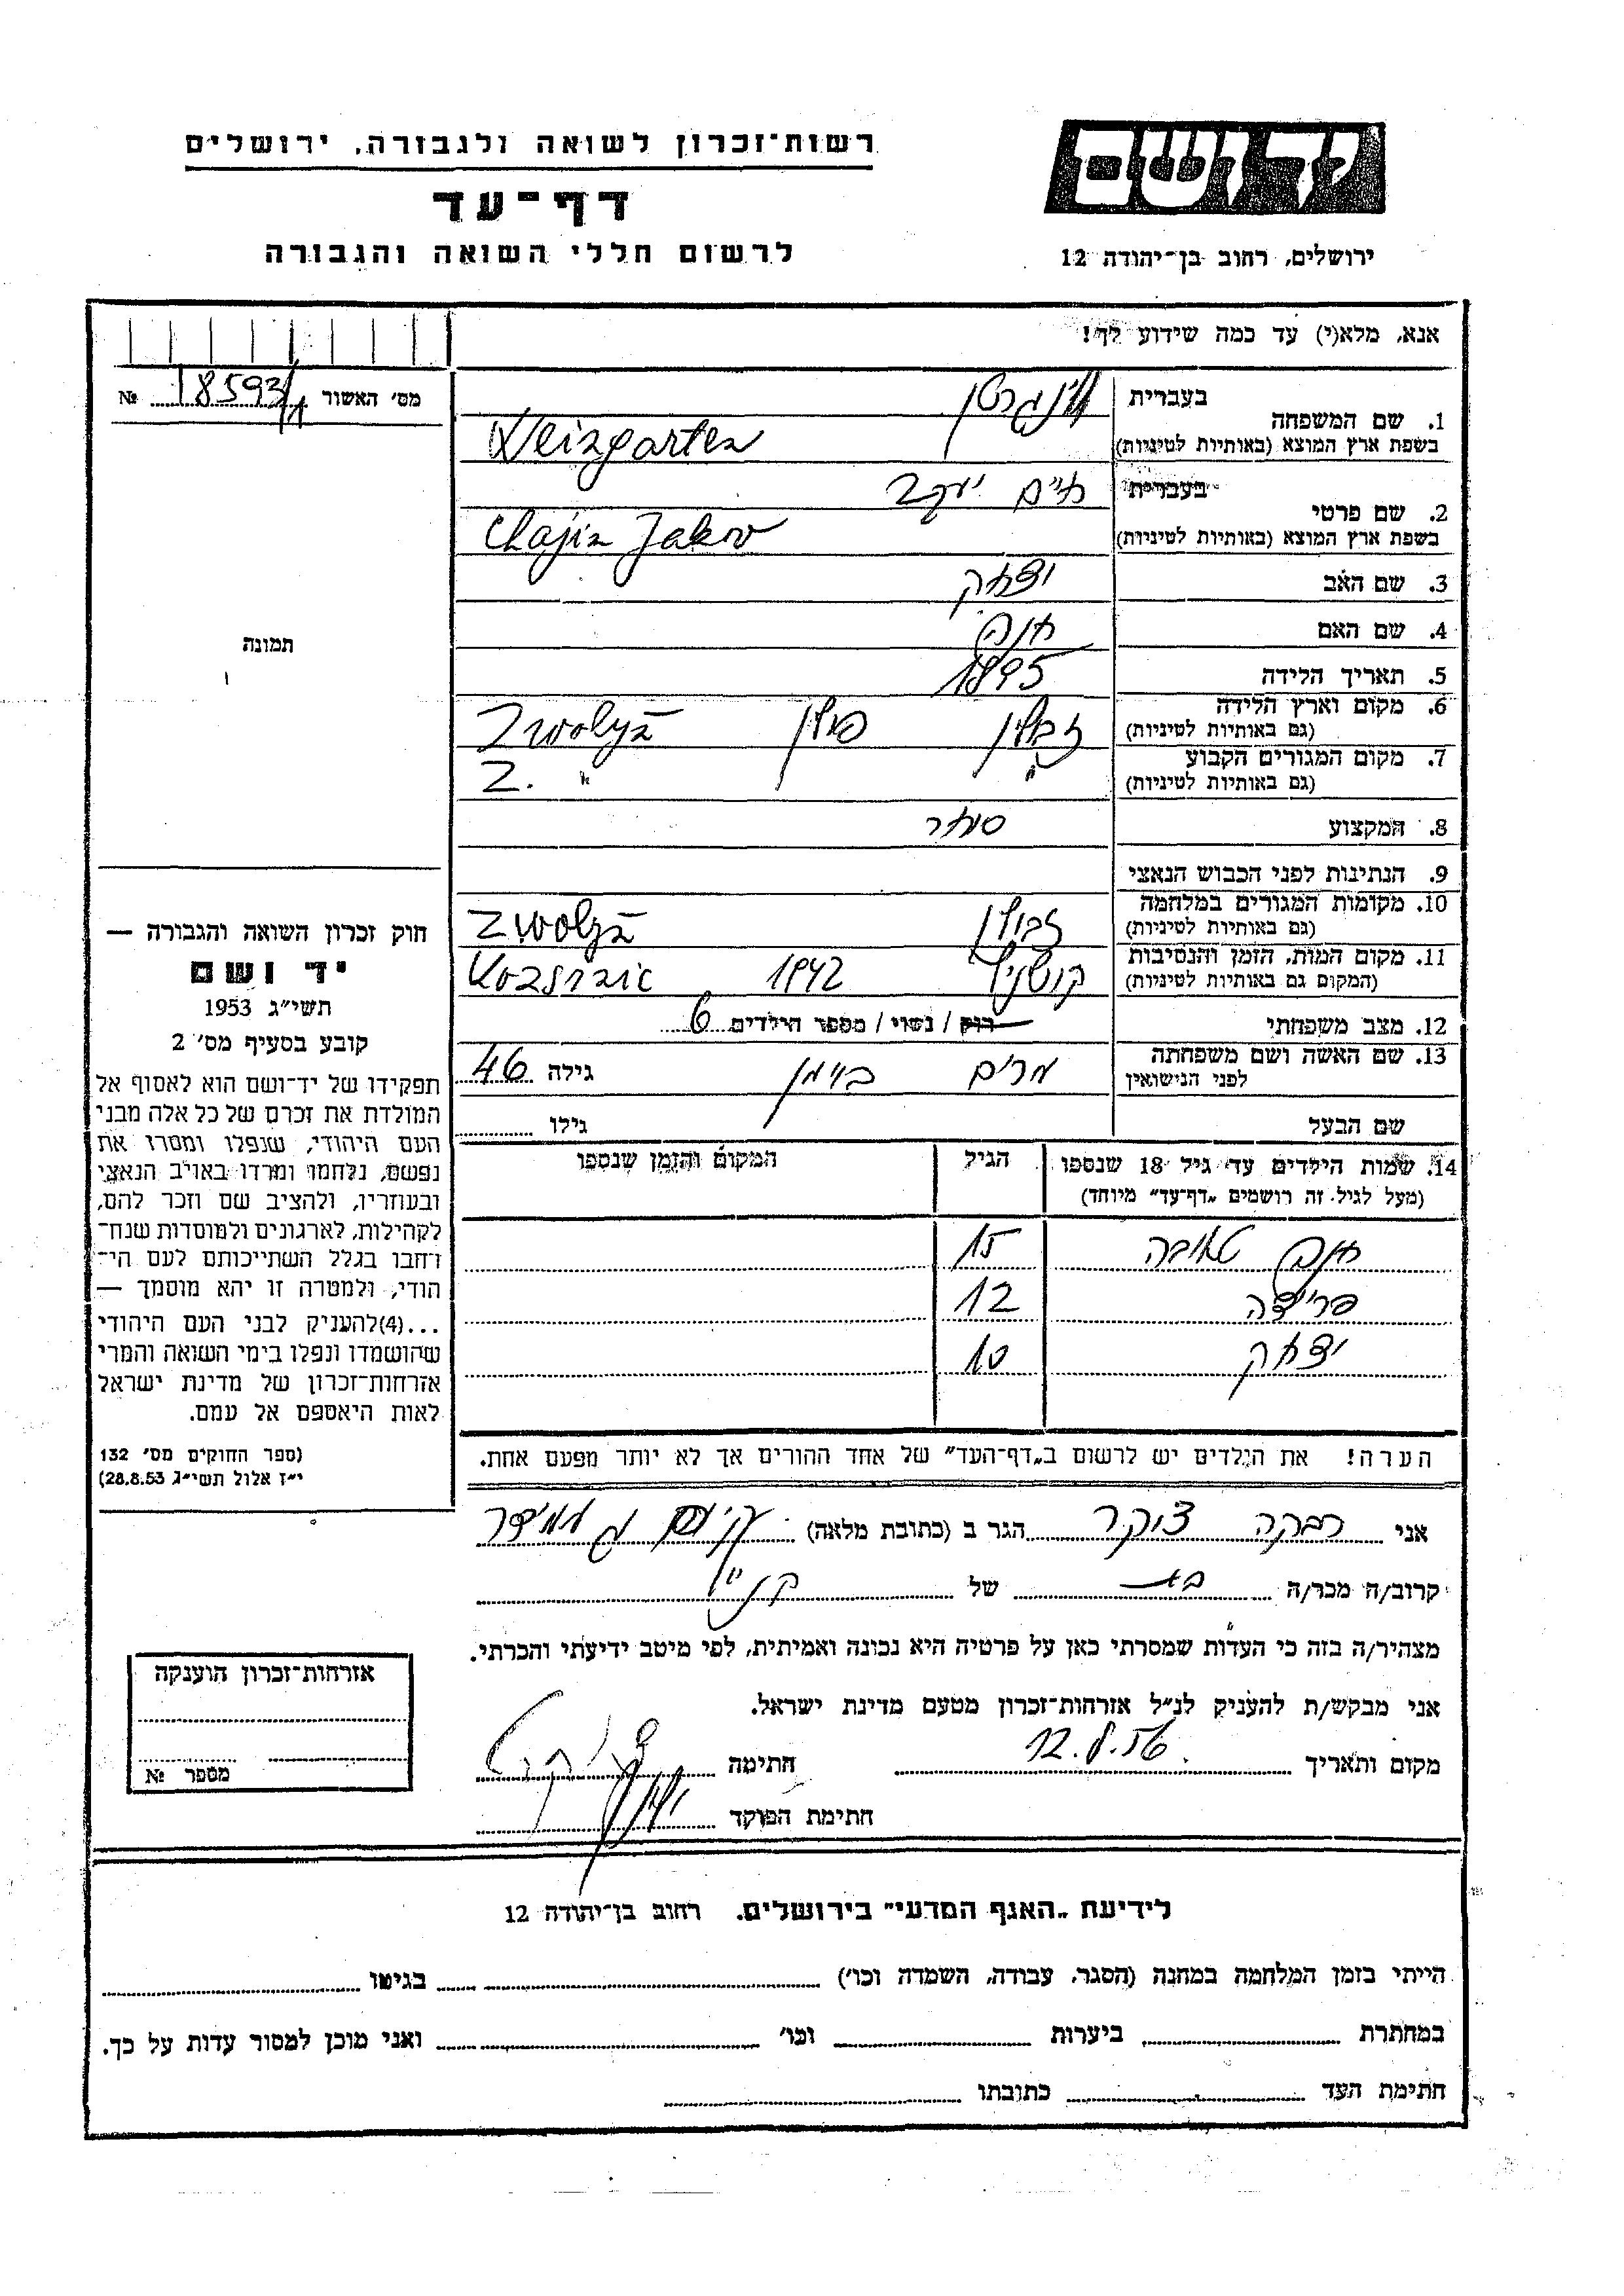 יד ושם
ירושלים, רחוב בן־יהודה 12
רשות־זכרון לשואה ולגבורה, ירושלים
דף־עד
לרשום חללי השואה והגבורה
אנא, מלא(י) עד כמה שידוע לך!
מס׳ האשור № 18593/1
תמונה
1. שם המשפחה
בעברית וינגרטן
בשפת ארץ המוצא (באותיות לטיניות) Weingarten
2. שם פרטי
בעברית חיים יעקב
בשפת ארץ המוצא (באותיות לטיניות) Chajim Jakov
3. שם האב יצחק
4. שם האם חנה
5. תאריך הלידה 1895
6. מקום וארץ הלידה
(גם באותיות לטיניות) זבולין פולין Zwolyń
7. מקום המגורים הקבוע
(גם באותיות לטיניות) " " Z.
8. המקצוע סוחר
9. הנתינות לפני הכבוש הנאצי
10. מקומות המגורים במלחמה
(גם באותיות לטיניות) זבולין Zwolyń
11. מקום המות, הזמן והנסיבות
(המקום גם באותיות לטיניות) 1942
12. מצב משפחתי רווק / נשוי / מספר הילדים 6
13. שם האשה ושם משפחתה
לפני הנישואין מרים בוימן גילה 46
שם הבעל גילו
14. שמות הילדים עד גיל 18 שנספו
(מעל לגיל זה רושמים „דף־עד״ מיוחד)
הגיל
המקום והזמן שנספו
חנה טאובה 15
פריידה 12
יצחק 10
הערה! את הילדים יש לרשום ב„דף־העד״ של אחד ההורים אך לא יותר מפעם אחת.
חוק זכרון השואה והגבורה —
יד ושם
תשי״ג 1953
קובע בסעיף מס׳ 2
תפקידו של יד־ושם הוא לאסוף אל
המולדת את זכרם של כל אלה מבני
העם היהודי, שנפלו ומסרו את
נפשם, נלחמו ומרדו באויב הנאצי
ובעוזריו, ולהציב שם וזכר להם,
לקהילות, לארגונים ולמוסדות שנח־
רחבו בגלל השתייכותם לעם הי־
הודי, ולמטרה זו יהא מוסמך —
...(4)להעניק לבני העם היהודי
שהושמדו ונפלו בימי השואה והמרי
אזרחות־זכרון של מדינת ישראל
לאות היאספם אל עמם.
(ספר החוקים מס׳ 132
י״ז אלול תשי״ג 28.8.53)
אני רבקה צוקר הגר ב (כתובת מלאה)
קרוב/ה מכר/ה בת של
מצהיר/ה בזה כי העדות שמסרתי כאן על פרטיה היא נכונה ואמיתית, לפי מיטב ידיעתי והכרתי.
אני מבקש/ת להעניק לנ״ל אזרחות־זכרון מטעם מדינת ישראל.
מקום ותאריך 12.8.56 חתימה
חתימת הפוקד
אזרחות־זכרון הוענקה
מספר №
לידיעת „האגף המדעי״ בירושלים. רחוב בן־יהודה 12
הייתי בזמן המלחמה במחנה (הסגר, עבודה, השמדה וכו׳) בגיטו
במחתרת ביערות וכו׳ ואני מוכן למסור עדות על כך.
חתימת העד כתובתו